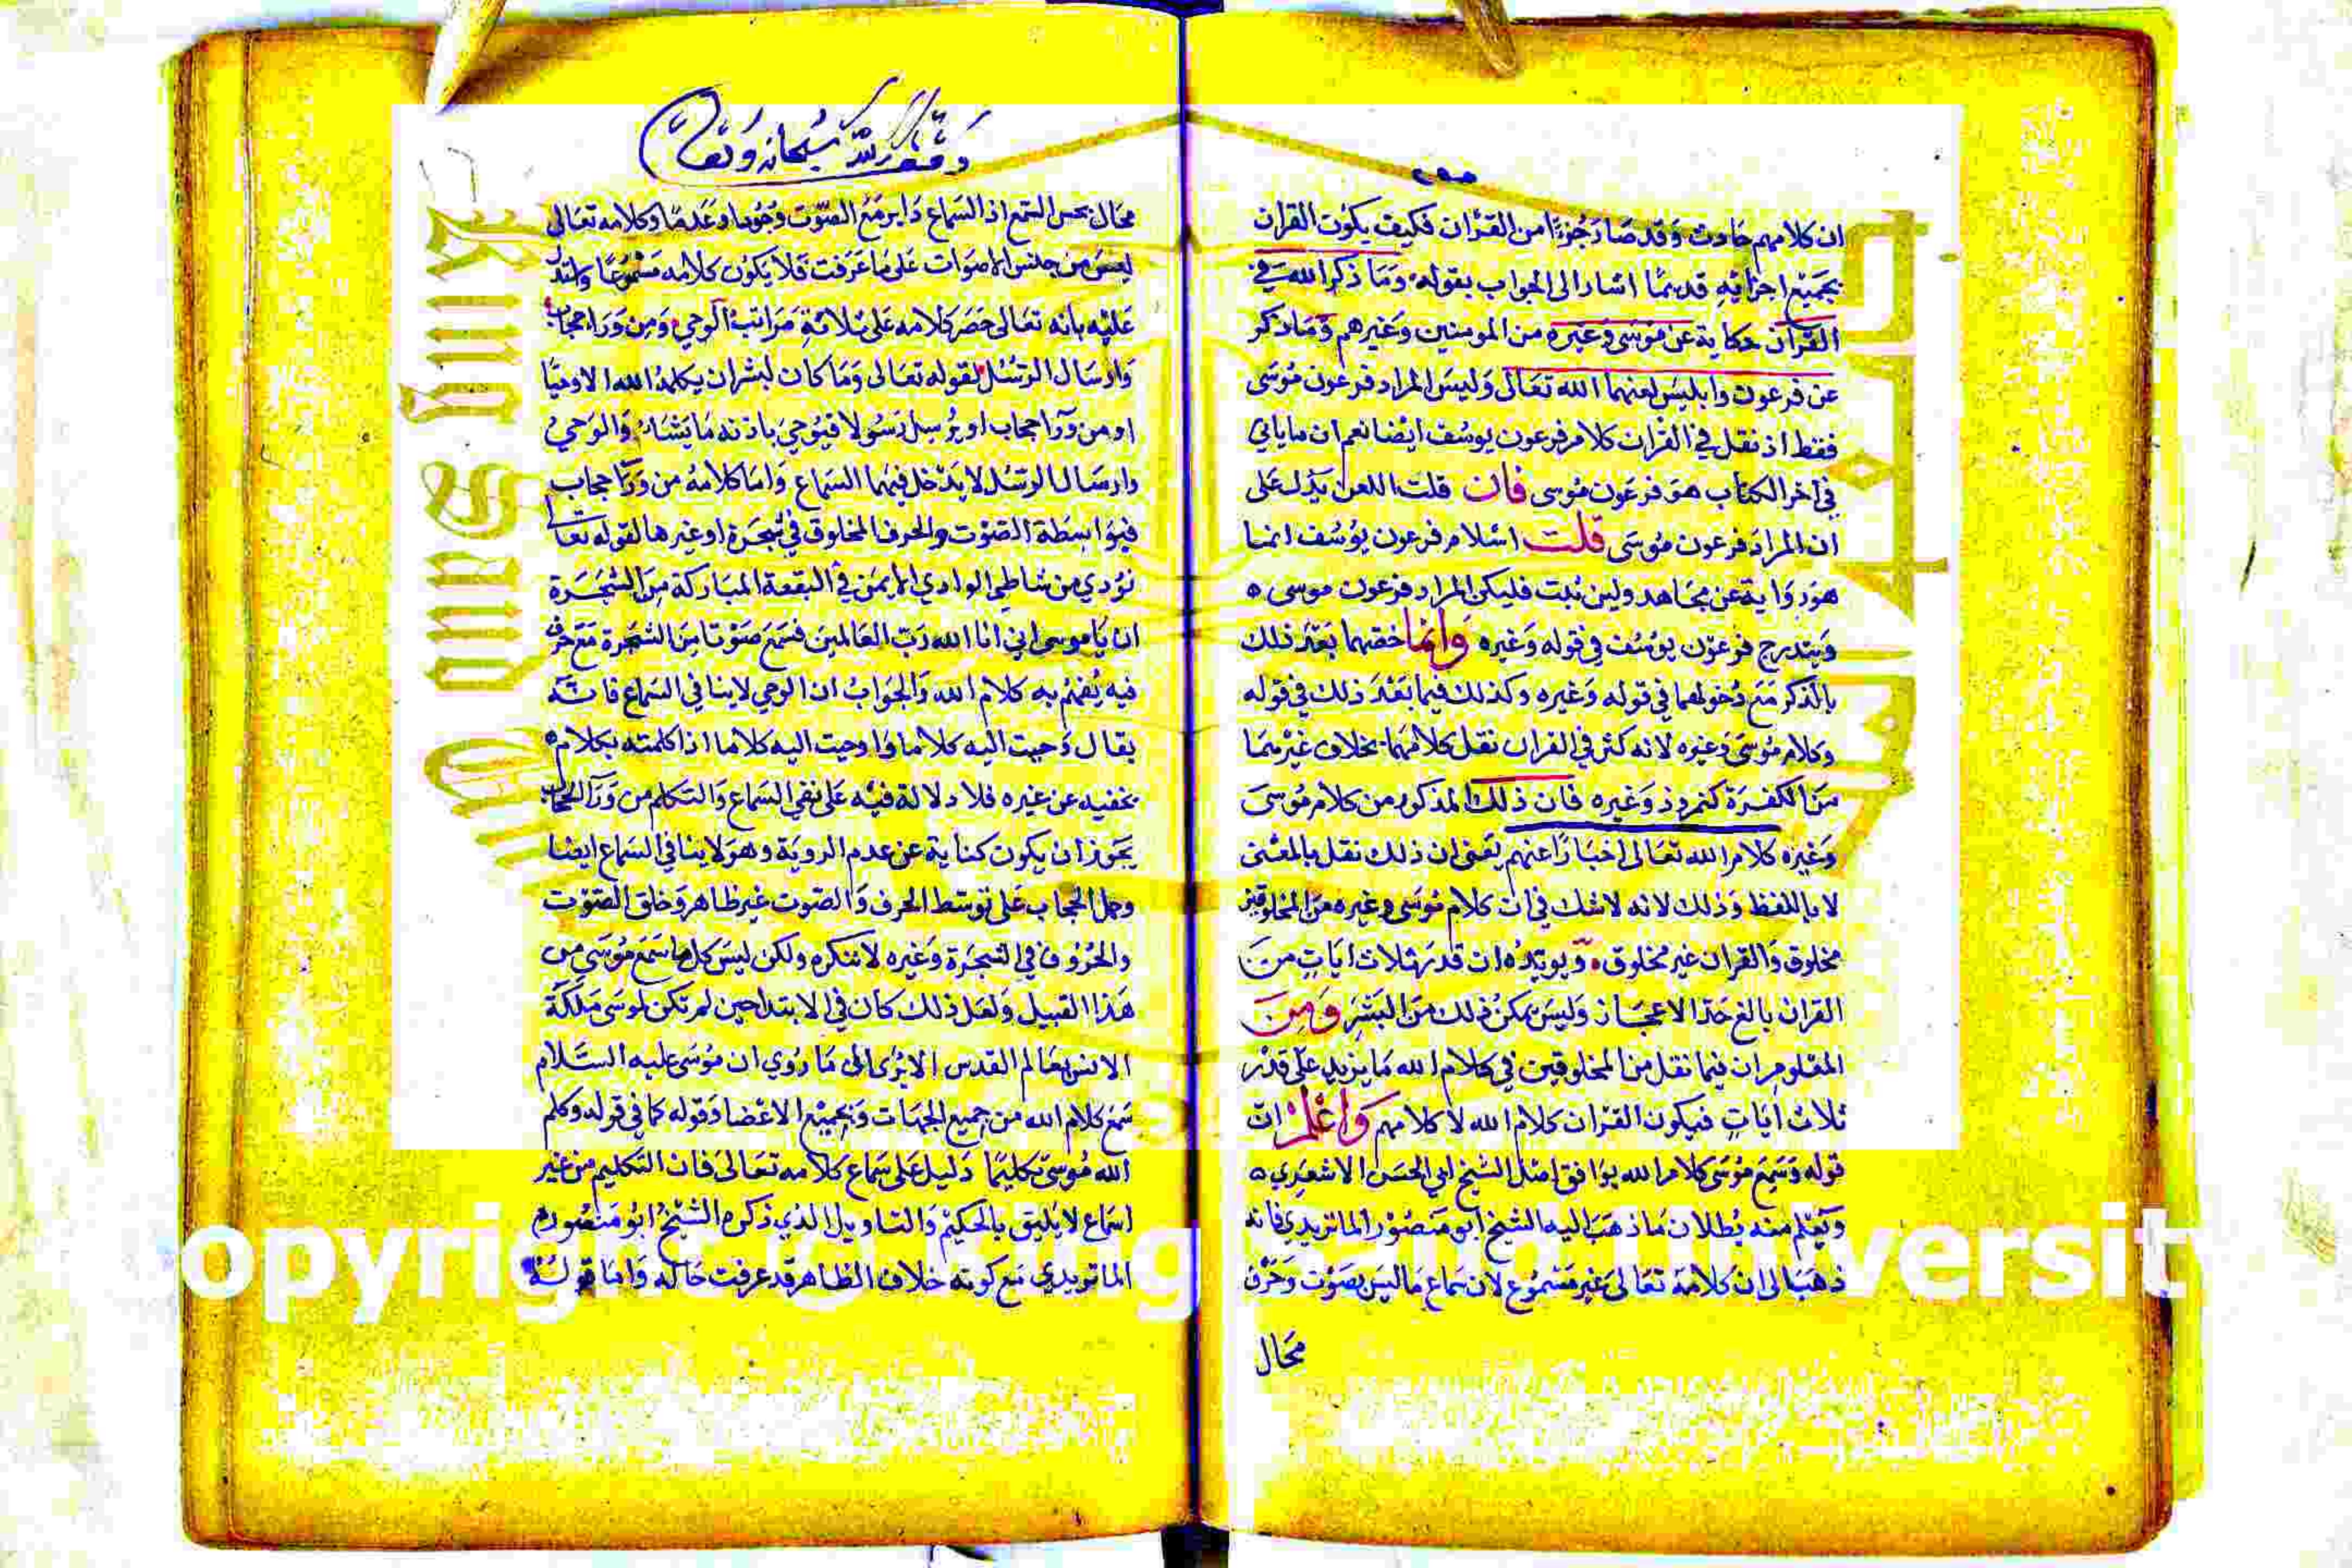 ان كلامهم حادث وقد صار جزءا من القران فكيف يكون القران
بجميع اجزائه قديما اشار الى الجواب بقوله وما ذكر الله في
القران حكاية عن موسى وغيره من المومنين وغيرهم وما ذكر
عن فرعون وابليس لعنهما الله تعالى وليس المراد فرعون موسى
فقط اذ نقل في القران كلام فرعون يوسف ايضا نعم ان ما ياتي
في اخر الكتاب هو فرعون موسى فان قلت اللعن يدل على
ان المراد فرعون موسى قلت اسلام فرعون يوسف انما
هو رواية عن مجاهد ولين ثبت فليكن المراد فرعون موسى ه
ويندرج فرعون يوسف في قوله وغيره وانما خصهما بعد ذلك
بالذكر مع دخولهما في قوله وغيره وكذلك فيما بعد ذلك في قوله
وكلام موسى وغيره لانه كثر في القران نقل كلامهما بخلاف غيرهما
من الكفرة كنمروذ وغيره فان ذلك المذكور من كلام موسى
وغيره كلام الله تعالى اخبارا عنهم يعني ان ذلك نقل بالمعنى
لا باللفظ وذلك لانه لا شك في ان كلام موسى وغيره من المخلوقين
مخلوق والقران غير مخلوق ويويده ان قدر ثلاث ايات من
القران بالغ حد الاعجاز وليس يمكن ذلك من البشر ومن
المعلوم ان فيما نقل من المخلوقين في كلام الله ما يزيد على قدر
ثلاث ايات فيكون القران كلام الله لا كلامهم واعلم ان
قوله وسمع موسى كلام الله يوافق اصل الشيخ ابي الحسن الاشعري ه
ويعلم منه بطلان ما ذهب اليه الشيخ ابو منصور الماتريدي فانه
ذهب الى ان كلامه تعالى غير مسموع لان سماع ما ليس بصوت وحرف
محال
وقف لله سبحانه وتعالى
محال بحس السمع اذ السماع داير مع الصوت وجودا وعدما وكلامه تعالى
ليس من جنس الاصوات على ما عرفت فلا يكون كلامه مسموعا واستدل
عليه بانه تعالى حصر كلامه على ثلاثة مراتب الوحي ومن وراء حجاب
وارسال الرسل لقوله تعالى وما كان لبشر ان يكلمه الله الا وحيا
او من ورا حجاب او يرسل رسولا فيوحي باذنه ما يشاء والوحي
وارسال الرسل لا يدخل فيهما السماع واما كلامه من ورا حجاب
فبواسطة الصوت والحرف المخلوق في شجرة او غيرها لقوله تعا
نودي من شاطي الوادي الايمن في البقعة المباركة من الشجرة
ان يا موسى اني انا الله رب العالمين فسمع صوتا من الشجرة مع حرف
فيه يفهم به كلام الله والجواب ان الوحي لا ينافي السماع فانه
يقال وحيت اليه كلاما واوحيت اليه كلاما اذا كلمته بكلام
تخفيه عن غيره فلا دلالة فيه على نفي السماع والتكلم من ورا الحجاب
يجوز ان يكون كناية عن عدم الروية وهو لا ينافي السماع ايضا
وحمل الحجاب على توسط الحرف والصوت غير ظاهر وخلق الصوت
والحروف في الشجرة وغيره لا ننكره ولكن ليس كل ما سمع موسى من
هذا القبيل ولعل ذلك كان في الابتدا حين لم تكن لموسى ملكة
الانس بعالم القدس الا يرى الى ما روي ان موسى عليه السلام
سمع كلام الله من جميع الجهات وبجميع الاعضا وقوله كما في قوله وكلم
الله موسى تكليما دليل على سماع كلامه تعالى فان التكليم من غير
اسماع لا يليق بالحكيم والتاويل الذي ذكره الشيخ ابو منصور
الماتريدي مع كونه خلاف الظاهر قد عرفت حاله واما قوله
opyright © King Saud Universit